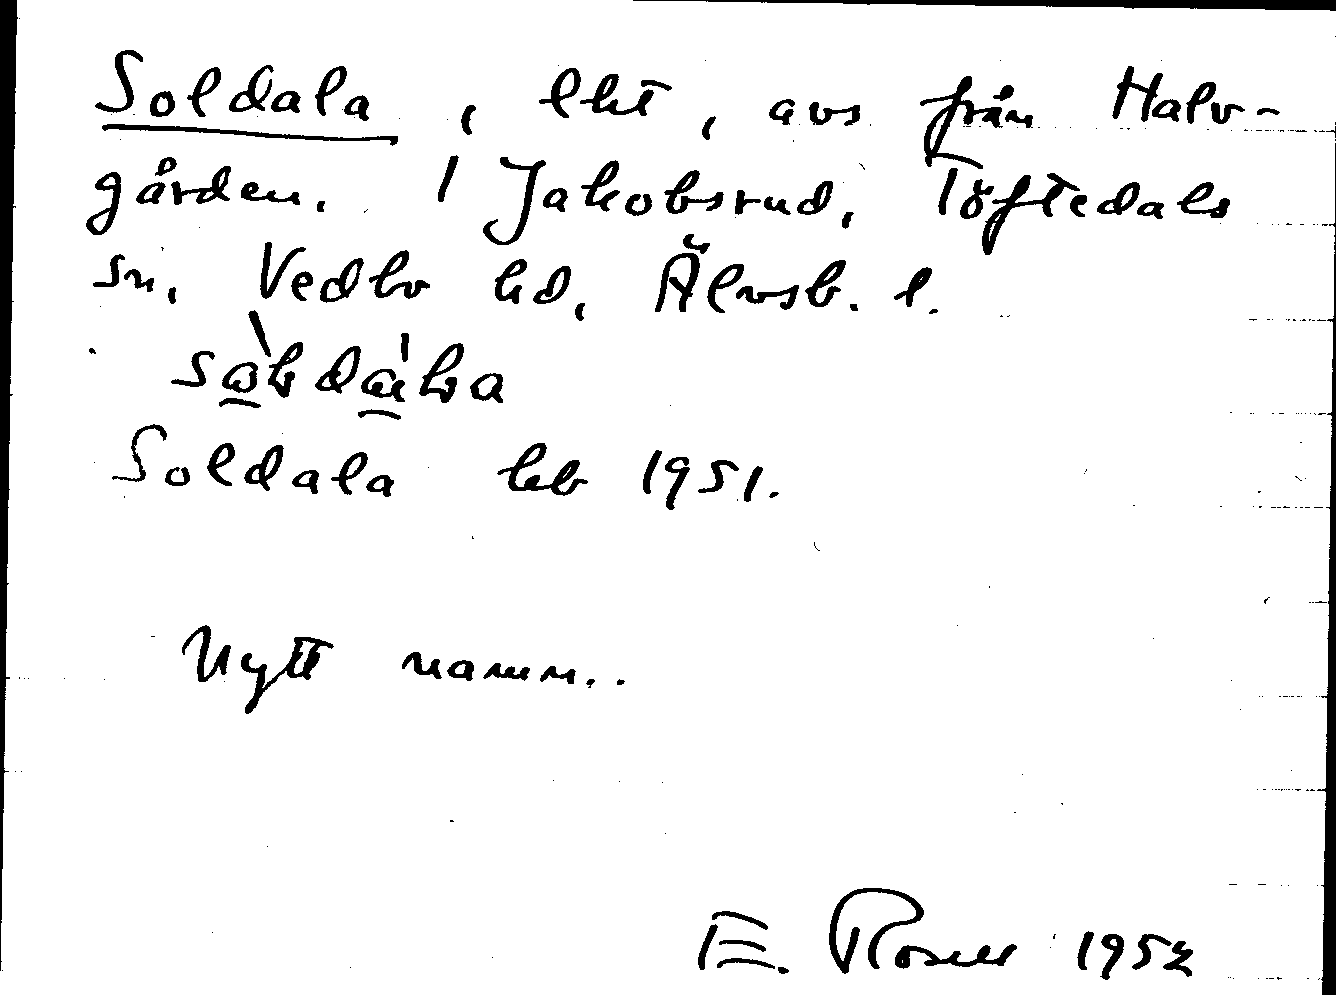 Soldala, lht, avs från Halv-
gården. 1 Jakobsrud, Töftedals
sn, Vedbo hd, Älvsb. l.
Soldala lab 1951.
Nytt namn..
E. Rosell 1952